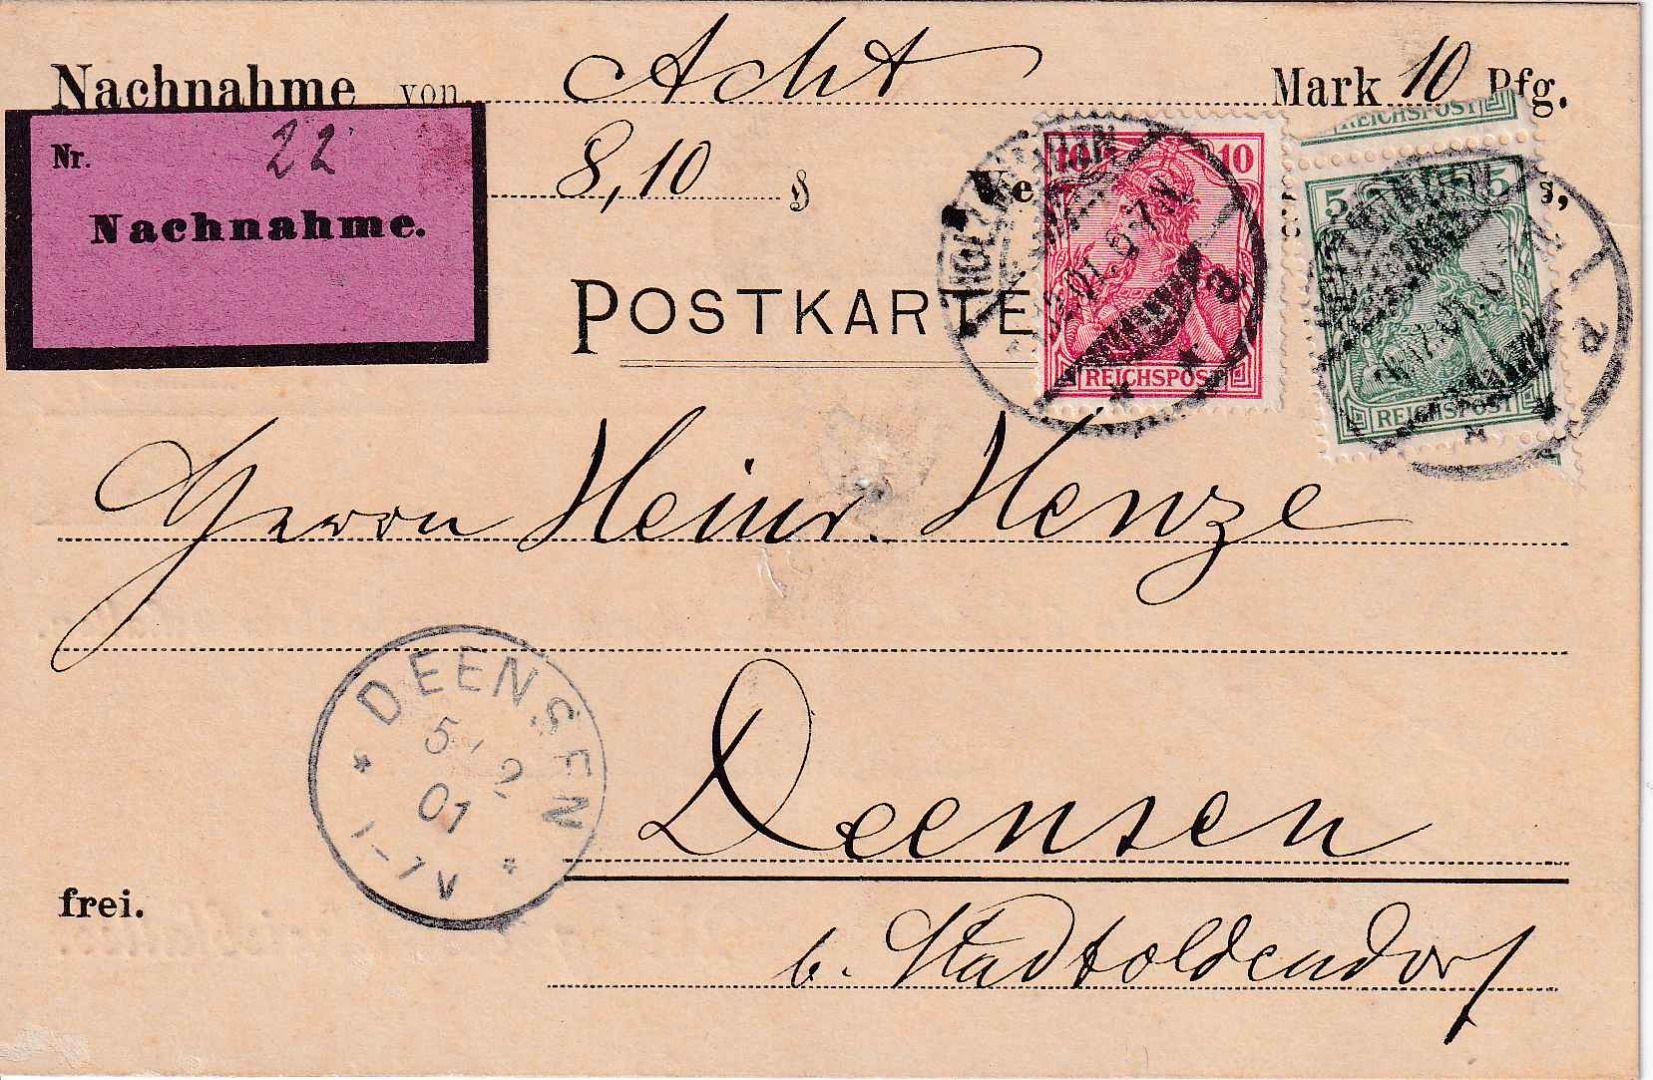 Nachnahme von Acht Mark 10 Pfg.
8,10
Nr. 22
Nachnahme.
POSTKARTE
10 10
REICHSPOST
REICHSPOST
5 5
REICHSPOST
HOLZMINDEN
Herrn Heinr. Henze
DEENSEN
5 2
01
1-7V
Deensen
frei.
b. Stadtoldendorf